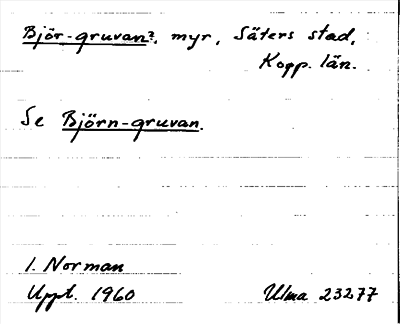 Björ-gruvan?, myr, Säters stad,
Kopp. län.
Se Björn-gruvan.
I. Norman
Uppt. 1960 Ulma 23277